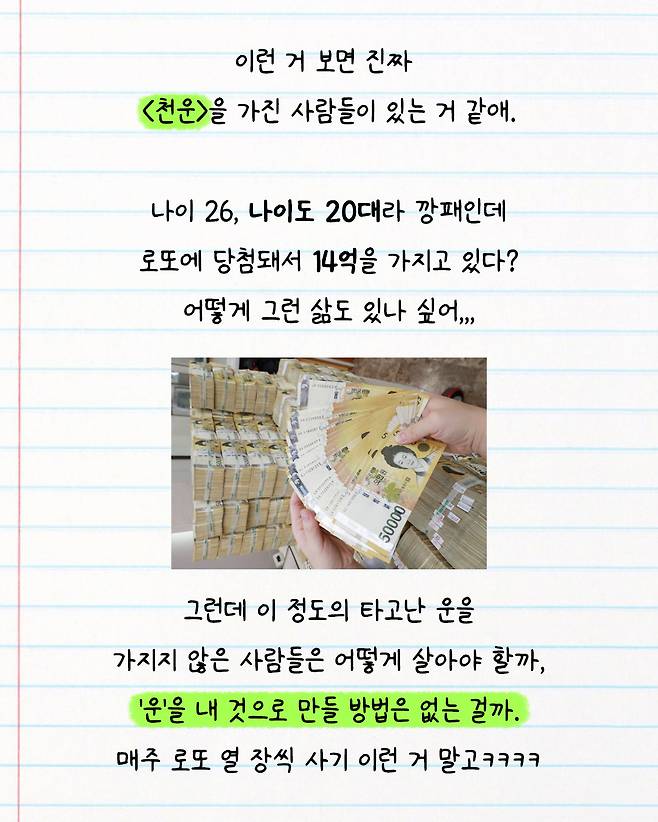 이런 거 보면 진짜
<천운>을 가진 사람들이 있는 거 같애.
나이 26, 나이도 20대라 깡패인데
로또에 당첨돼서 14억을 가지고 있다?
어떻게 그런 삶도 있나 싶어,,,
50000
그런데 이 정도의 타고난 운을
가지지 않은 사람들은 어떻게 살아야 할까,
'운'을 내 것으로 만들 방법은 없는 걸까.
매주 로또 열 장씩 사기 이런 거 말고ㅋㅋㅋㅋ